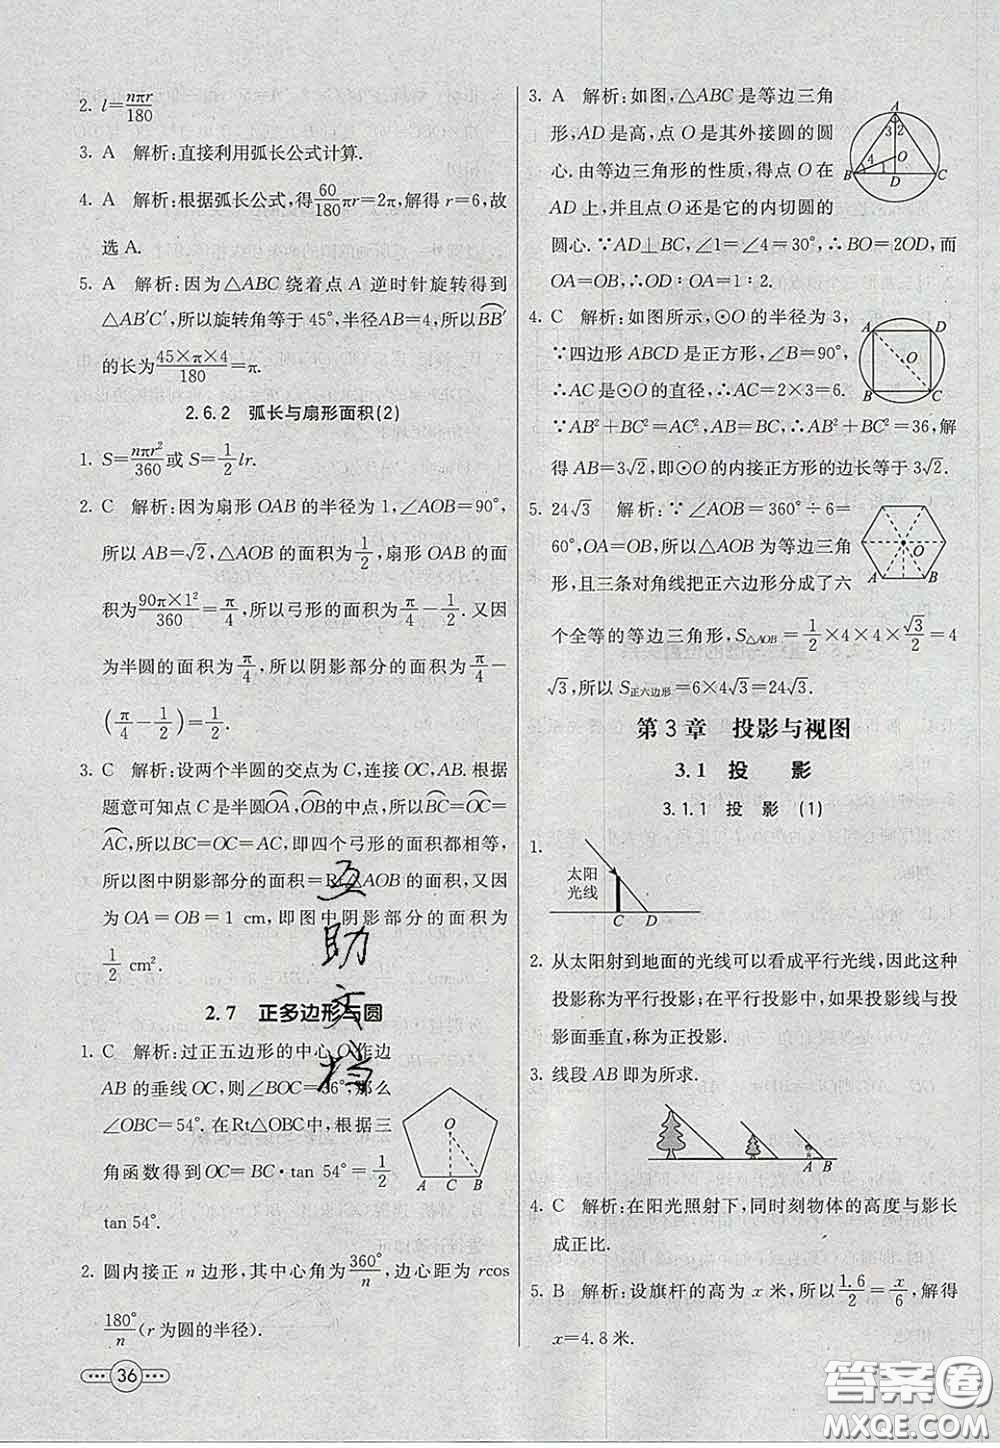 2. l=nπr/180
3. A　解析:直接利用弧长公式计算.
4. A　解析:根据弧长公式,得60/180πr=2π,解得 r=6,故
选 A.
5. A　解析:因为△ABC 绕着点 A 逆时针旋转得到
△AB′C′,所以旋转角等于 45°,半径AB=4,所以BB′
的长为45×π×4/180=π.
2.6.2　弧长与扇形面积(2)
1. S=nπr²/360或 S=1/2lr.
2. C　解析:因为扇形 OAB 的半径为1,∠AOB=90°,
所以 AB=√2,△AOB 的面积为1/2,扇形 OAB 的面
积为90π×1²/360=π/4,所以弓形的面积为π/4−1/2. 又因
为半圆的面积为π/4,所以阴影部分的面积为π/4−
(π/4−1/2)=1/2.
3. C　解析:设两个半圆的交点为 C,连接 OC,AB. 根据
题意可知点 C 是半圆OA,OB的中点,所以BC=OC=
AC,所以BC=OC=AC,即四个弓形的面积都相等,
所以图中阴影部分的面积=Rt△AOB 的面积,又因
为 OA=OB=1 cm,即图中阴影部分的面积为
1/2 cm².
2.7　正多边形与圆
1. C　解析:过正五边形的中心 O 作边
AB 的垂线 OC,则∠BOC=36°,那么
∠OBC=54°. 在Rt△OBC中,根据三
角函数得到 OC=BC·tan 54°=1/2
tan 54°.
O
A C B
2. 圆内接正 n 边形,其中心角为360°/n,边心距为 rcos
180°/n(r 为圆的半径).
36
3. A　解析:如图,△ABC 是等边三角
形,AD 是高,点 O 是其外接圆的圆
心.由等边三角形的性质,得点 O 在
AD 上,并且点 O 还是它的内切圆的
圆心.∵AD⊥BC,∠1=∠4=30°,∴BO=2OD,而
OA=OB,∴OD:OA=1:2.
A
3 2
4 1 O
B D C
4. C　解析:如图所示,⊙O 的半径为 3,
∵四边形 ABCD 是正方形,∠B=90°,
∴AC 是⊙O 的直径,∴AC=2×3=6.
∵AB²+BC²=AC²,AB=BC,∴AB²+BC²=36,解
得 AB=3√2,即⊙O 的内接正方形的边长等于 3√2.
A D
O
B C
5. 24√3　解析:∵∠AOB=360°÷6=
60°,OA=OB,∴△AOB 为等边三角
形,且三条对角线把正六边形分成了六
个全等的等边三角形,S△AOB=1/2×4×4×√3/2=4
√3,所以 S正六边形=6×4√3=24√3.
O
A B
第 3 章　投影与视图
3.1　投　影
3.1.1　投　影　(1)
1.
太阳
光线
C D
2. 从太阳射到地面的光线可以看成平行光线,因此这种
投影称为平行投影;在平行投影中,如果投影线与投
影面垂直,称为正投影.
3. 线段 AB 即为所求.
A B
4. C　解析:在阳光照射下,同时刻物体的高度与影长
成正比.
5. B　解析:设旗杆的高为 x 米,所以1.6/2=x/6,解得
x=4.8 米.
互助文档
答案圈
MXQE.COM